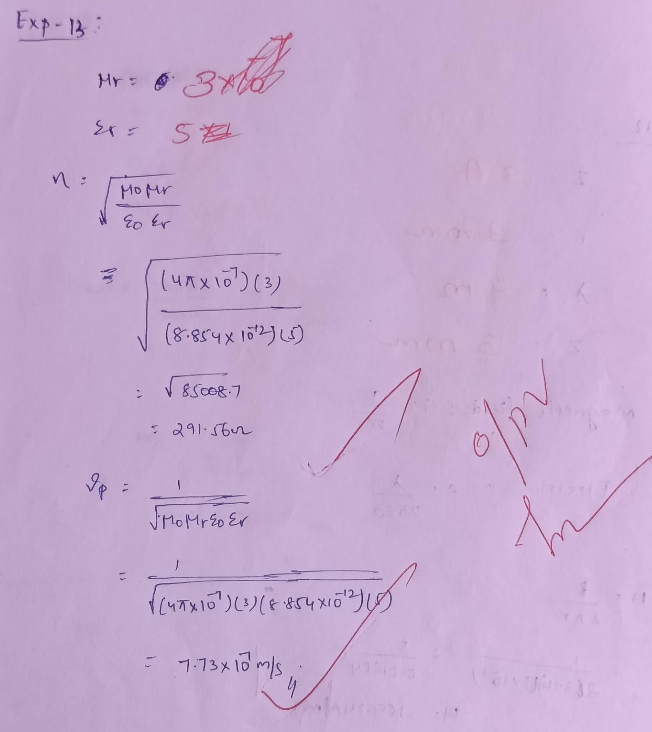 Exp-13:
μr = 3
εr = 5
η = √(μ0 μr / ε0 εr)
= √((4π×10⁻⁷)(3) / (8.854×10⁻¹²)(5))
= √85008.7
= 291.56Ω
ϑp = 1 / √μ0μrε0εr
= 1 / √(4π×10⁻⁷)(3)(8.854×10⁻¹²)(5)
= 7.73×10⁷ m/s